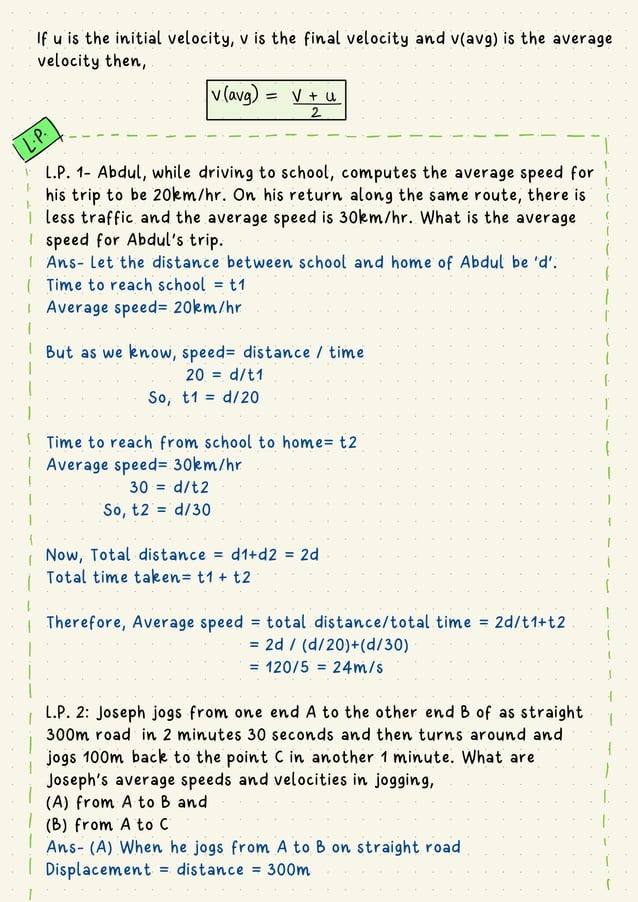 If u is the initial velocity, v is the final velocity and v(avg) is the average
velocity then,
v(avg) = v + u / 2
L.P.
L.P. 1- Abdul, while driving to school, computes the average speed for
his trip to be 20km/hr. On his return along the same route, there is
less traffic and the average speed is 30km/hr. What is the average
speed for Abdul's trip.
Ans- Let the distance between school and home of Abdul be 'd'.
Time to reach school = t1
Average speed= 20km/hr
But as we know, speed= distance / time
20 = d/t1
So, t1 = d/20
Time to reach from school to home= t2
Average speed= 30km/hr
30 = d/t2
So, t2 = d/30
Now, Total distance = d1+d2 = 2d
Total time taken= t1 + t2
Therefore, Average speed = total distance/total time = 2d/t1+t2
= 2d / (d/20)+(d/30)
= 120/5 = 24m/s
L.P. 2: Joseph jogs from one end A to the other end B of as straight
300m road in 2 minutes 30 seconds and then turns around and
jogs 100m back to the point C in another 1 minute. What are
Joseph's average speeds and velocities in jogging,
(A) from A to B and
(B) from A to C
Ans- (A) When he jogs from A to B on straight road
Displacement = distance = 300m